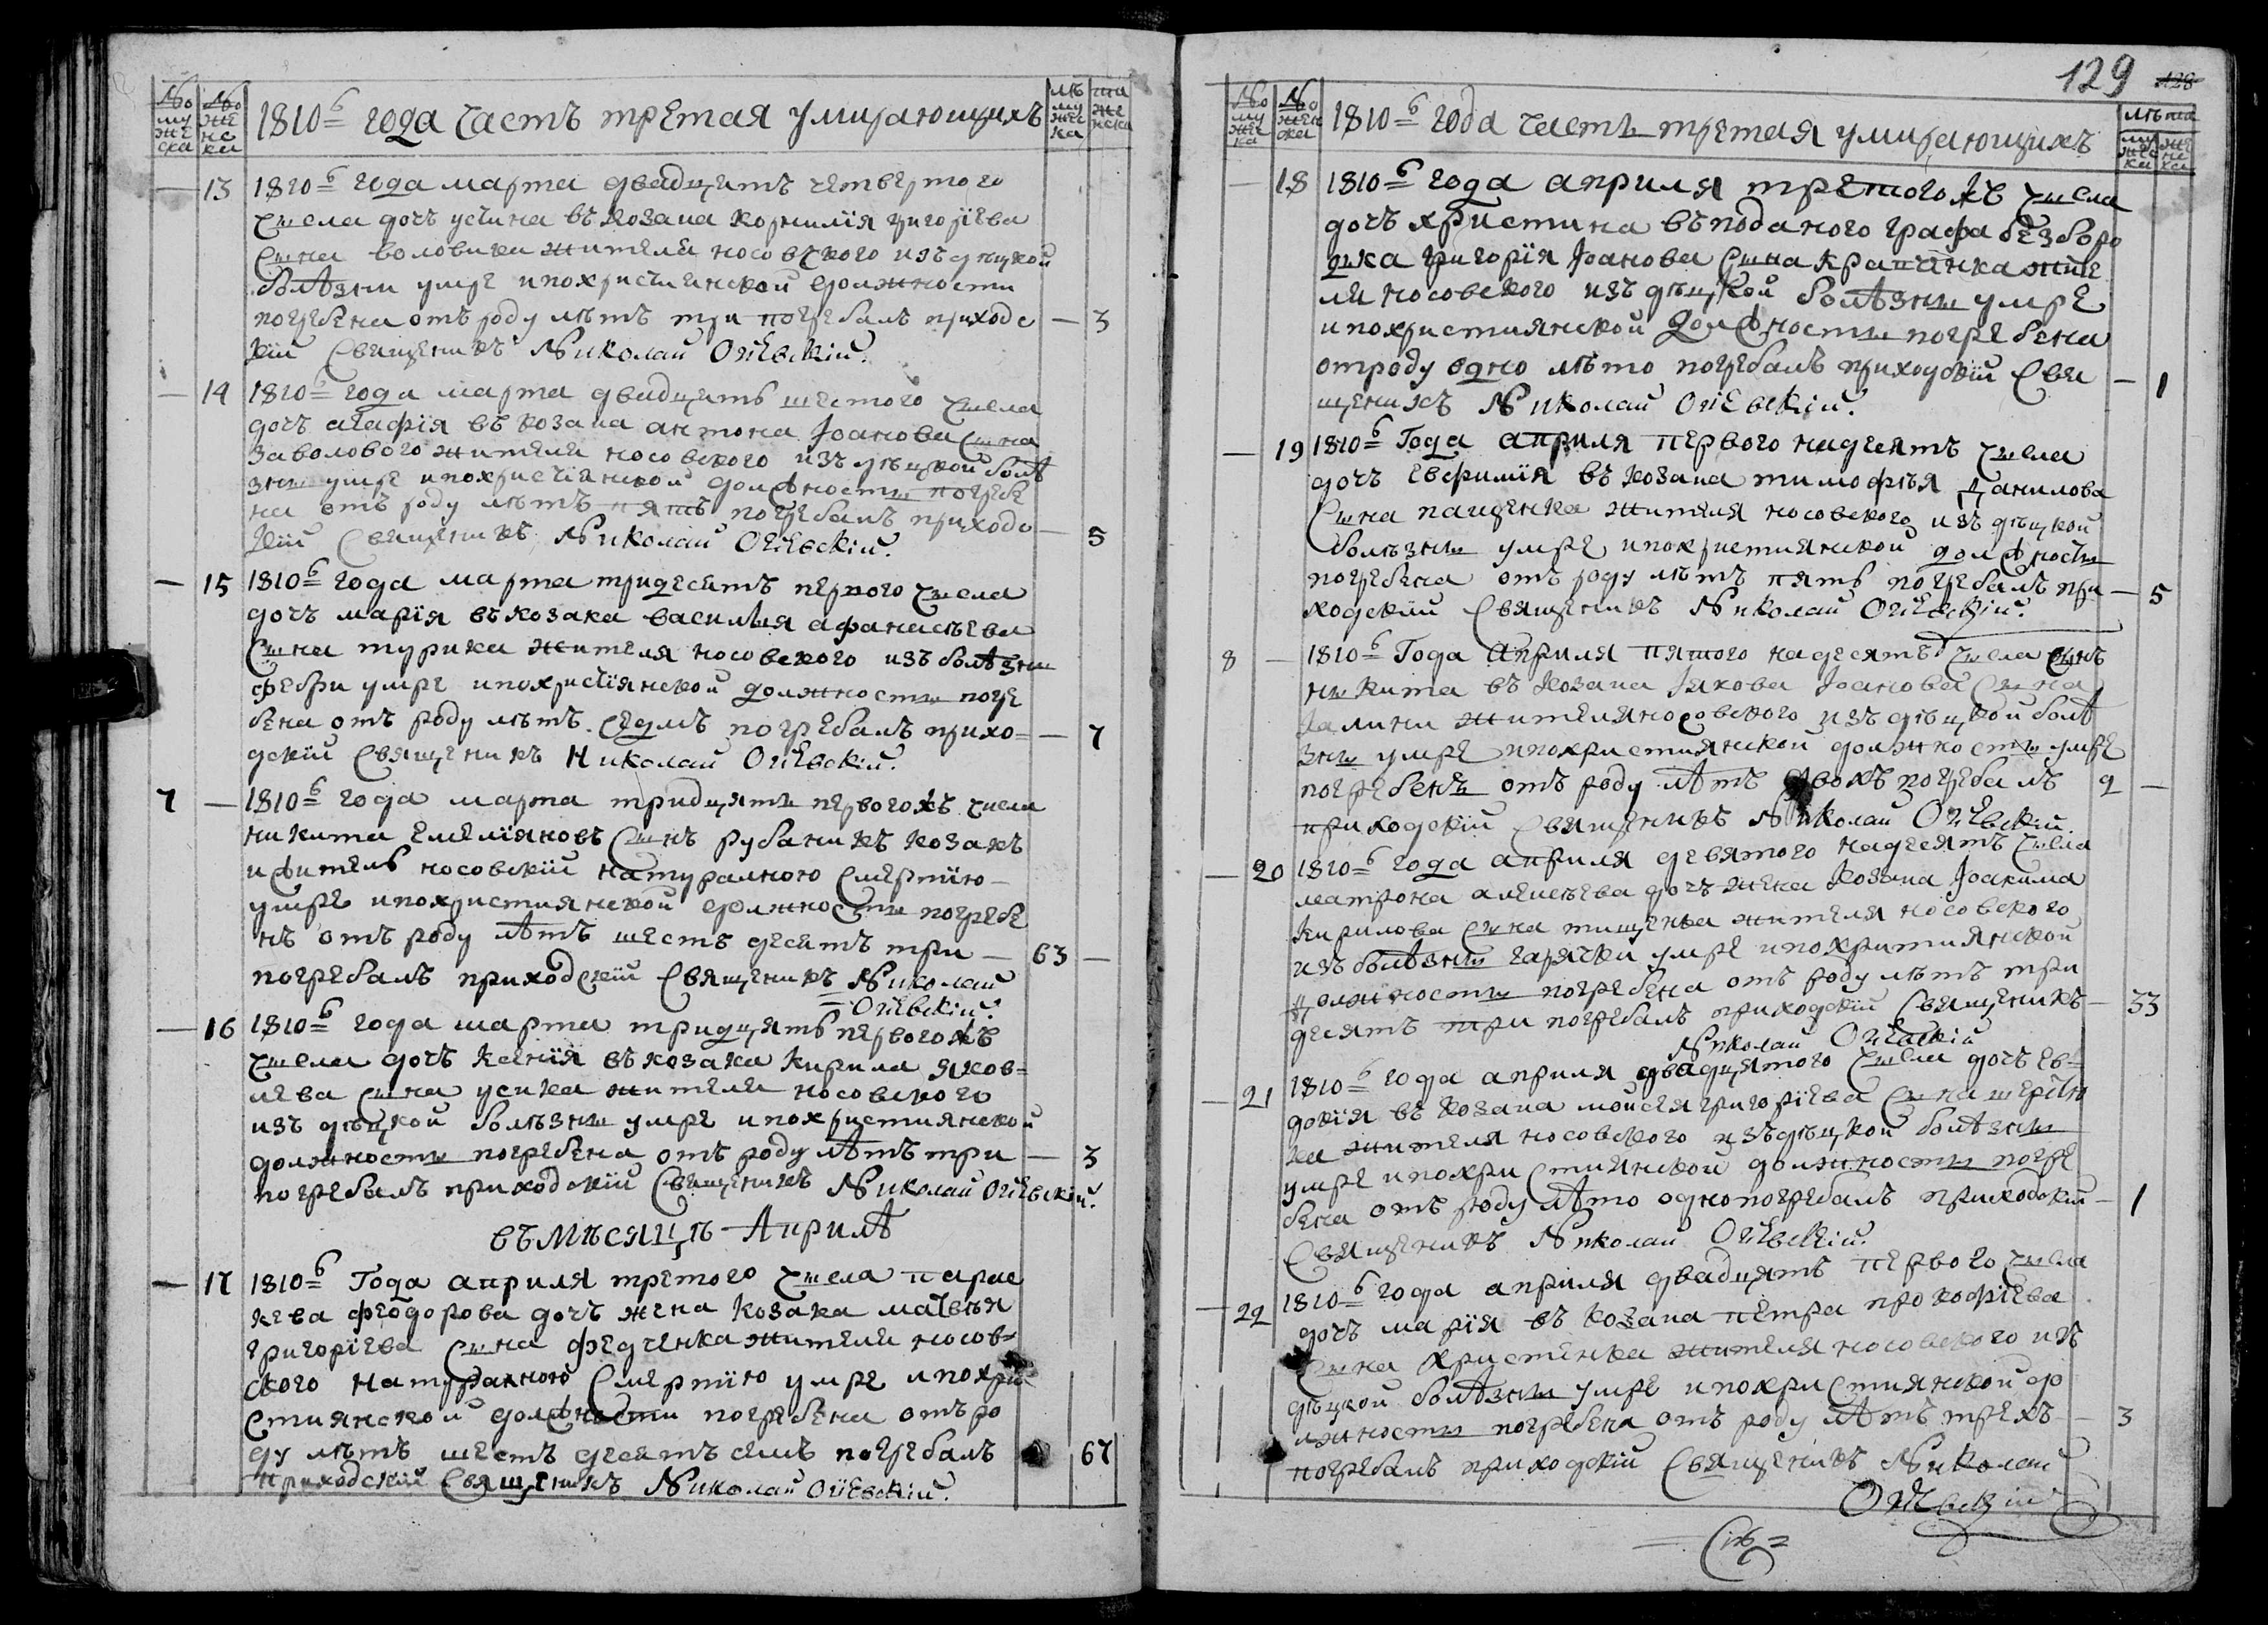 № мужеска
№ женска
1810г года часть третая умирающихъ
лѣта
мужеска
женска
— 13 1810г года марта двадцять четвертого
числа дочь устина въ козака корнилія григоріева
сина воловика жителя носовского изъ дѣцкой
болѣзни умре и похристиянской должности
погребена отъ роду лѣтъ три погребалъ приходс — 3
кій Священикъ Николай Огіевскій.
— 14 1810г года марта двадцять шестого числа
дочъ агафія въ козака антона Іоанова сина
заволового жителя носовского изъ дѣцкой болѣ
зни умре и похристіянской должности погребе
на отъ роду лѣтъ пять погребалъ приходс — 5
кій Священикъ Николай Огіевскій.
— 15 1810г года марта тридесятъ первого числа
дочъ марія въ козака василья афанасіева
Сина турика жителя носовского изъ болѣзни
фебри умре и похристіянской должности погре
бена отъ роду лѣтъ седмъ погребалъ прихо= — 7
дскій Священикъ Николай Огіевскій.
7 — 1810г года марта тридцяти первогожъ числа
никита емеліяновъ Синъ рубаникъ козакъ
и житель носовскій натуралною Смертїю
умре и похристиянской должности погребе
нъ отъ роду лѣтъ шестъ десятъ три — 63 —
погребалъ приходскій Священикъ Николай
Огіевскій.
— 16 1810г года марта тридцять первогожъ
числа дочъ ксенїя въ козака кирила яков=
лева сина усика жителя носовского
изъ дѣцкой болѣзни умре и похристиянской
должности погребена отъ роду лѣтъ три — 3
погребалъ приходскій Священикъ Николай Огіевскій.
въ мѣсяцѣ Априлѣ
— 17 1810г Года априля третого числа парас
кева феодорова дочъ жена козака матвѣя
григорїева Сина федченка жителя носов=
ского натуралною Смертїю умре и похри
стиянской должности погребена отъ ро
ду лѣтъ шестъ десятъ семъ погребалъ 67
приходскій Священикъ Николай Огіевскій.
129 128
№ мужеска
№ женска
1810г года часть третая умирающихъ
лѣта
мужеска
женска
— 18 1810г года априля третогожъ числа
дочъ христина въ поданого графа безборо
дка григорїя Іоанова Сина жите
ля носовского изъ дѣцкой болѣзни умре
и похристиянской должности погребена
отроду одно лѣто погребалъ приходскій Свя — 1
щеникъ Николай Огіевскій.
— 19 1810г Года априля первого надесятъ числа
дочъ евфимїя въ козака тимофѣя данилова
Сина пащенка жителя носовского изъ дѣцкой
болѣзни умре и похристиянской должности
погребена отъ роду лѣтъ пять погребалъ при — 5
ходскій Священикъ Николай Огіевскій.
8 — 1810г Года Априля пятого надесятъ числа Синъ
никита въ козака Іякова Іоанова Сина
галини жителя носовского изъ дѣцкой болѣ
зни умре и похристиянской должности умре
погребенъ отъ роду лѣтъ двохъ погребалъ 2 —
приходскій Священикъ Николай Огіевскій.
— 20 1810г года априля девятого надесятъ числа
матрона алексѣева дочъ жена козака Іоакима
кирилова Сина тищенка жителя носовского
изъ болѣзни гарячки умре и похритиянской
должности погребена отъ роду лѣтъ три
десятъ три погребалъ приходскій Священикъ — 33
Николай Огіевскій
— 21 1810г года априля двадцятого числа дочъ ев=
докїя въ козака мойсея григорїева Сина
ка жителя носовского изъ дѣцкой болѣзни
умре и похри стиянской должности погре
бена отъ роду лѣто одно погребалъ приходскій — 1
Священикъ Николай Огіевскій.
— 22 1810г года априля двадцять первого числа
дочъ марія въ козака петра прокофїева
Сина христенка жителя носовского изъ
дѣцкой болѣзни умре и похристиянской до
лжности погребена отъ роду лѣтъ трехъ — 3
погребалъ приходскій Священикъ Николай
Огіевскій